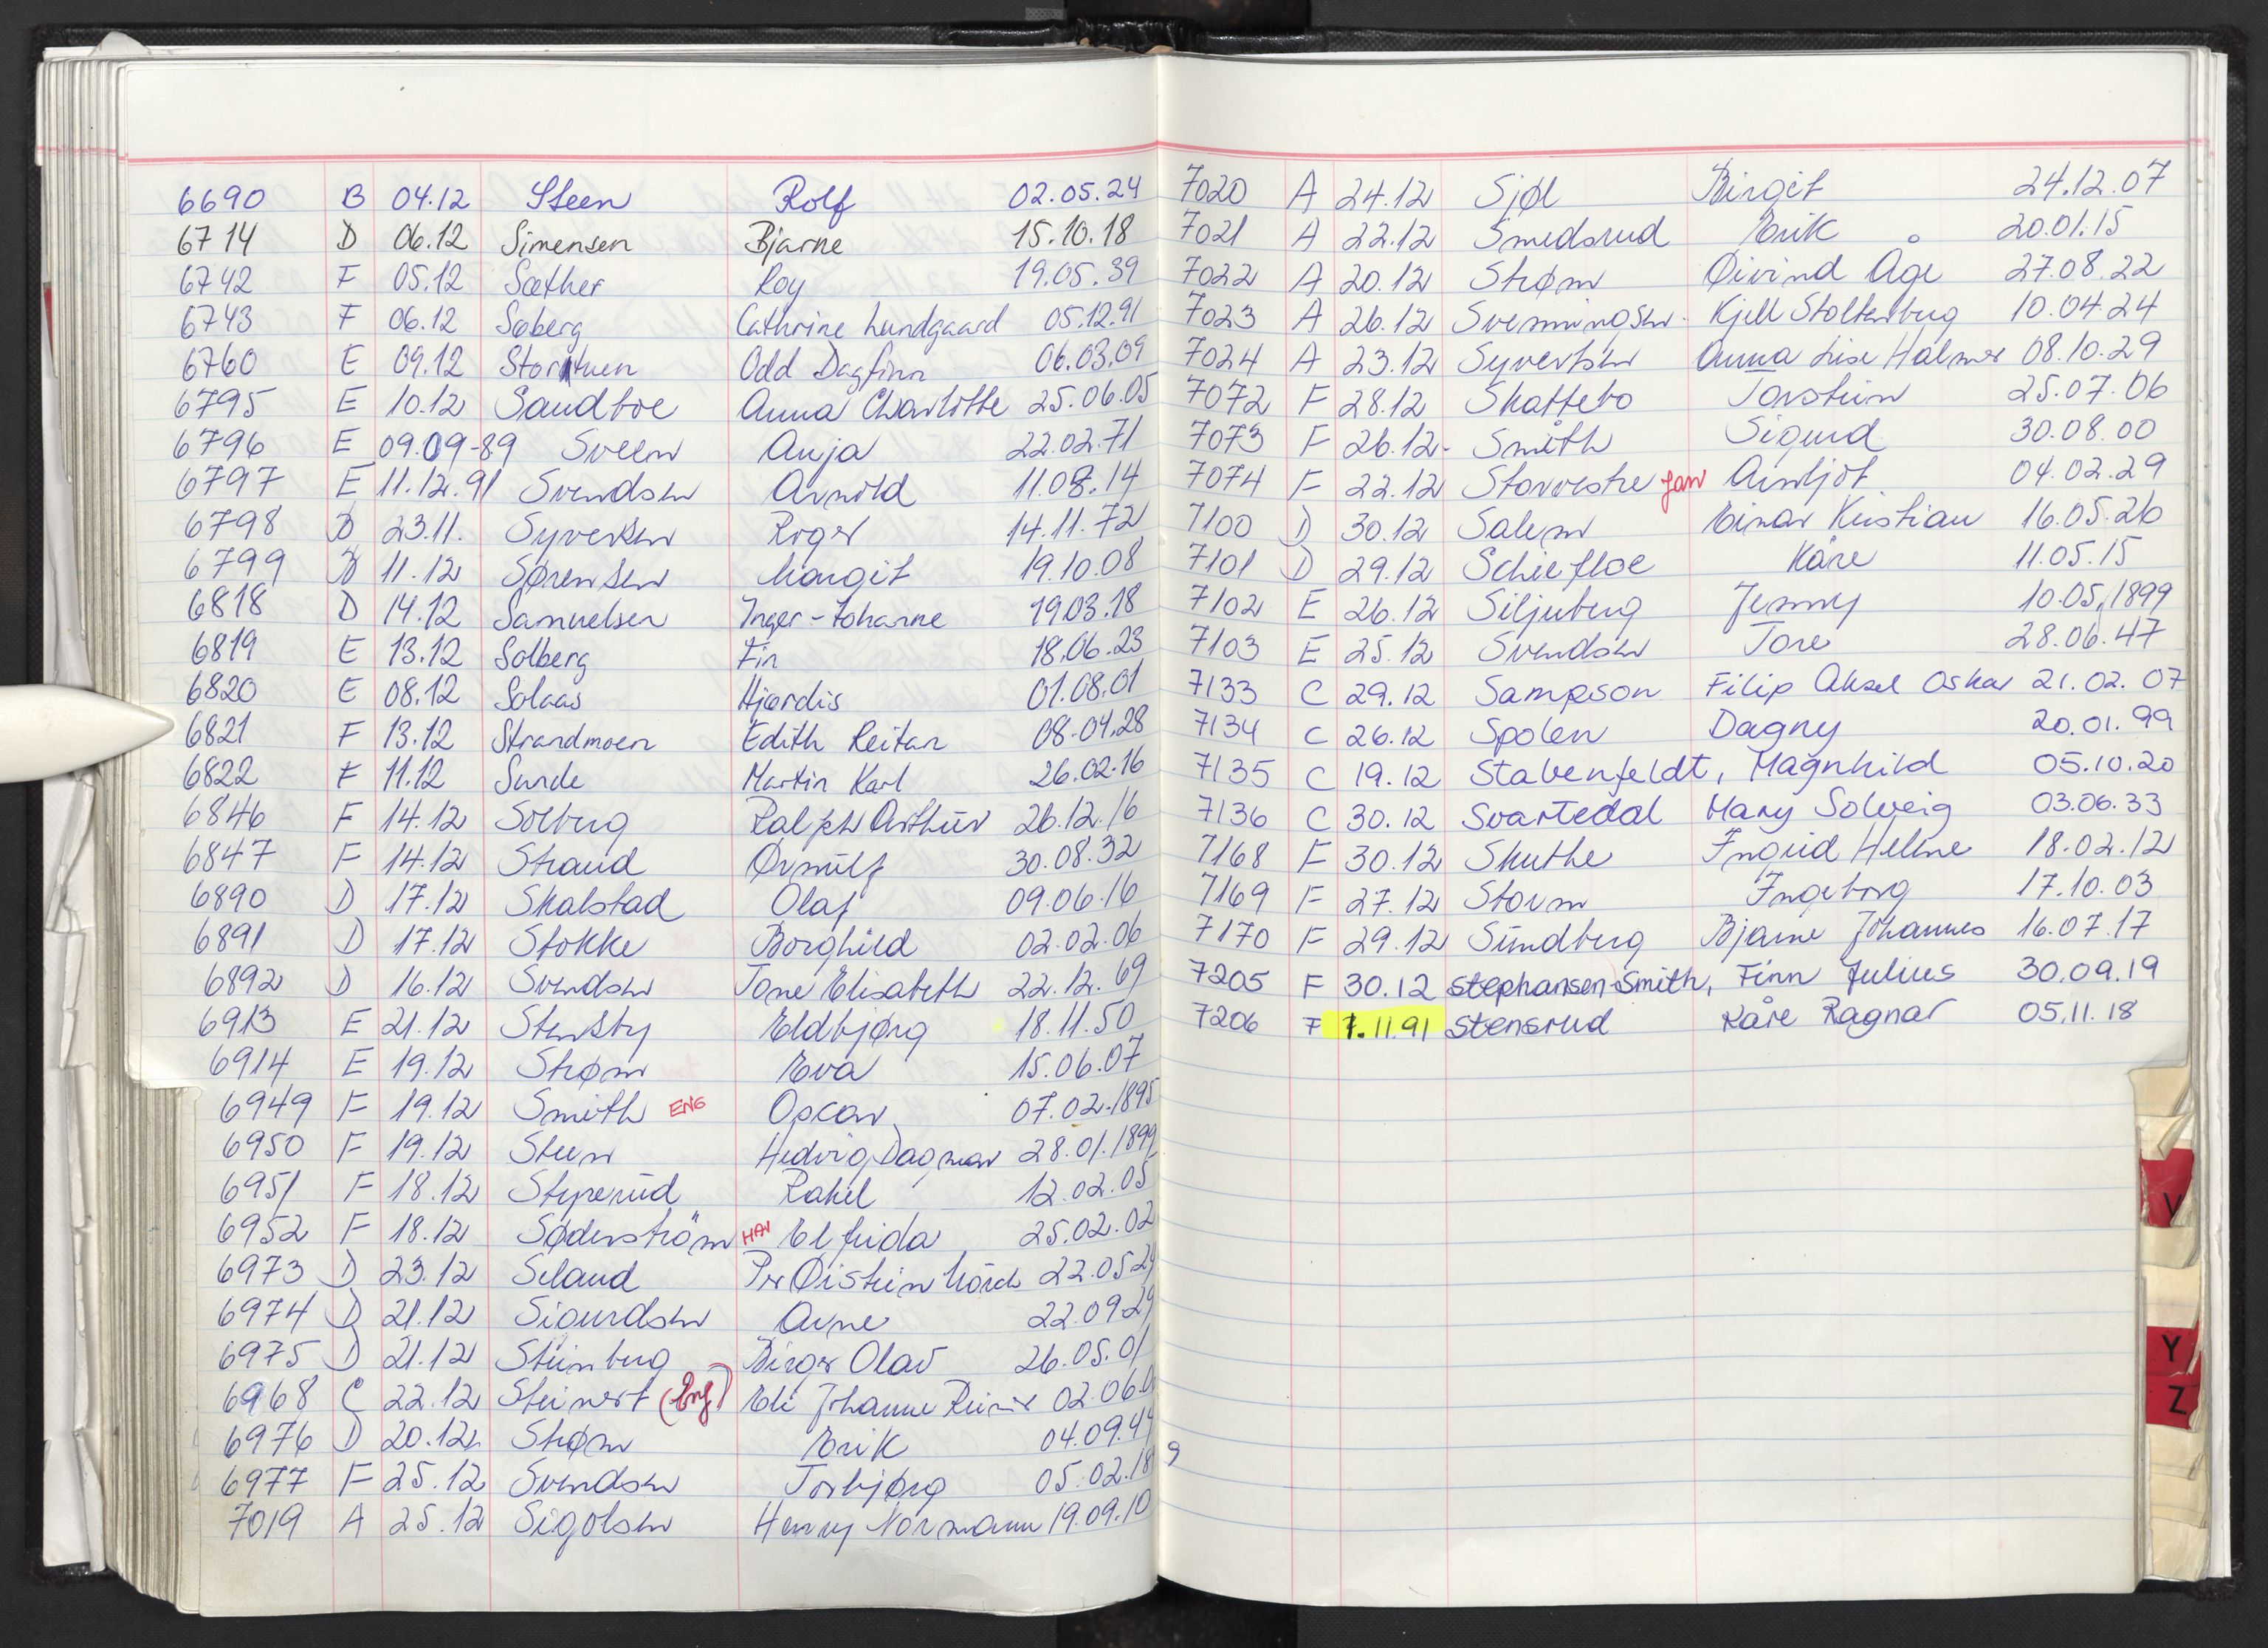 6690 B 04.12 Steen Rolf 02.05.24
6714 D 06.12 Simensen Bjarne 15.10.18
6742 F 05.12 Sæther Roy 19.05.39
6743 F 06.12 Søberg Cathrine Lundgaard 05.12.91
6760 E 09.12 Stortuen Odd Dagfinn 06.03.09
6795 E 10.12 Sandboe Anna Charlotte 25.06.05
6796 E 09.09-89 Sveen Anja 22.02.71
6797 E 11.12.91 Svendsen Arnold 11.08.14
6798 D 23.11. Syversen Roger 14.11.72
6799 D 11.12 Sørensen Margit 19.10.08
6818 D 14.12 Samuelsen Inger-Johanne 19.03.18
6819 E 13.12 Solberg Fin 18.06.23
6820 E 08.12 Solaas Hjørdis 01.08.01
6821 F 13.12 Strandmoen Edith Reitan 08.04.28
6822 F 11.12 Sunde Martin Karl 26.02.16
6846 F 14.12 Solberg Ralph Arthur 26.12.16
6847 F 14.12 Strand Ørnulf 30.08.32
6890 D 17.12 Skalstad Olaf 09.06.16
6891 D 17.12 Stokke Borghild 02.02.06
6892 D 16.12 Svendsen Tone Elisabeth 22.12.69
6913 E 21.12 Stensby Eldbjørg 18.11.50
6914 E 19.12 Strøm Eva 15.06.07
6949 F 19.12 Smith ENG Oscar 07.02.1895
6950 F 19.12 Steen Hedvig Dagmar 28.01.1899
6951 F 18.12 Styrerud Rakel 12.02.05
6952 F 18.12 Søderström HAV Elfrida 25.02.02
6973 D 23.12 Seland Per Øistein 22.05.24
6974 D 21.12 Sigurdsen Arne 22.09.29
6975 D 21.12 Steinberg Birger Olav 26.05.01
6968 C 22.12 Steinert (Eng) Eli Johanne 02.06.0
6976 D 20.12 Strøm Erik 04.09.44
6977 F 25.12 Svendsen Torbjørg 05.02.189
7019 A 25.12 Sigolsen Henry Normann 19.09.10
7020 A 24.12 Sjøl Birgit 24.12.07
7021 A 22.12 Smedsrud Erik 20.01.15
7022 A 20.12 Strøm Øivind Åge 27.08.22
7023 A 26.12 Svenningsen Kjell Stoltenberg 10.04.24
7024 A 23.12 Syvertsen Anna Lise Halmer 08.10.29
7072 F 28.12 Skattebo Torstein 25.07.06
7073 F 26.12- Smith Sigurd 30.08.00
7074 F 22.12 Storvestre Jan Arnljot 04.02.29
7100 D 30.12 Salem Einar Kristian 16.05.26
7101 D 29.12 Schiefloe Kåre 11.05.15
7102 E 26.12 Siljuberg Jenny 10.05.1899
7103 E 25.12 Svendsen Tore 28.06.47
7133 C 29.12 Sampson Filip Aksel Oskar 21.02.07
7134 C 26.12 Spolen Dagny 20.01.99
7135 C 19.12 Stabenfeldt, Magnhild 05.10.20
7136 C 30.12 Svartedal Mary Solveig 03.06.33
7168 F 30.12 Skuthe Ingrid Helene 18.02.12
7169 F 27.12 Storm Ingeborg 17.10.03
7170 F 29.12 Sundberg Bjarne Johannes 16.07.17
7205 F 30.12 Stephansen-Smith, Finn Julius 30.09.19
7206 F 7.11.91 Stensrud Kåre Ragnar 05.11.18
V
Y
Z